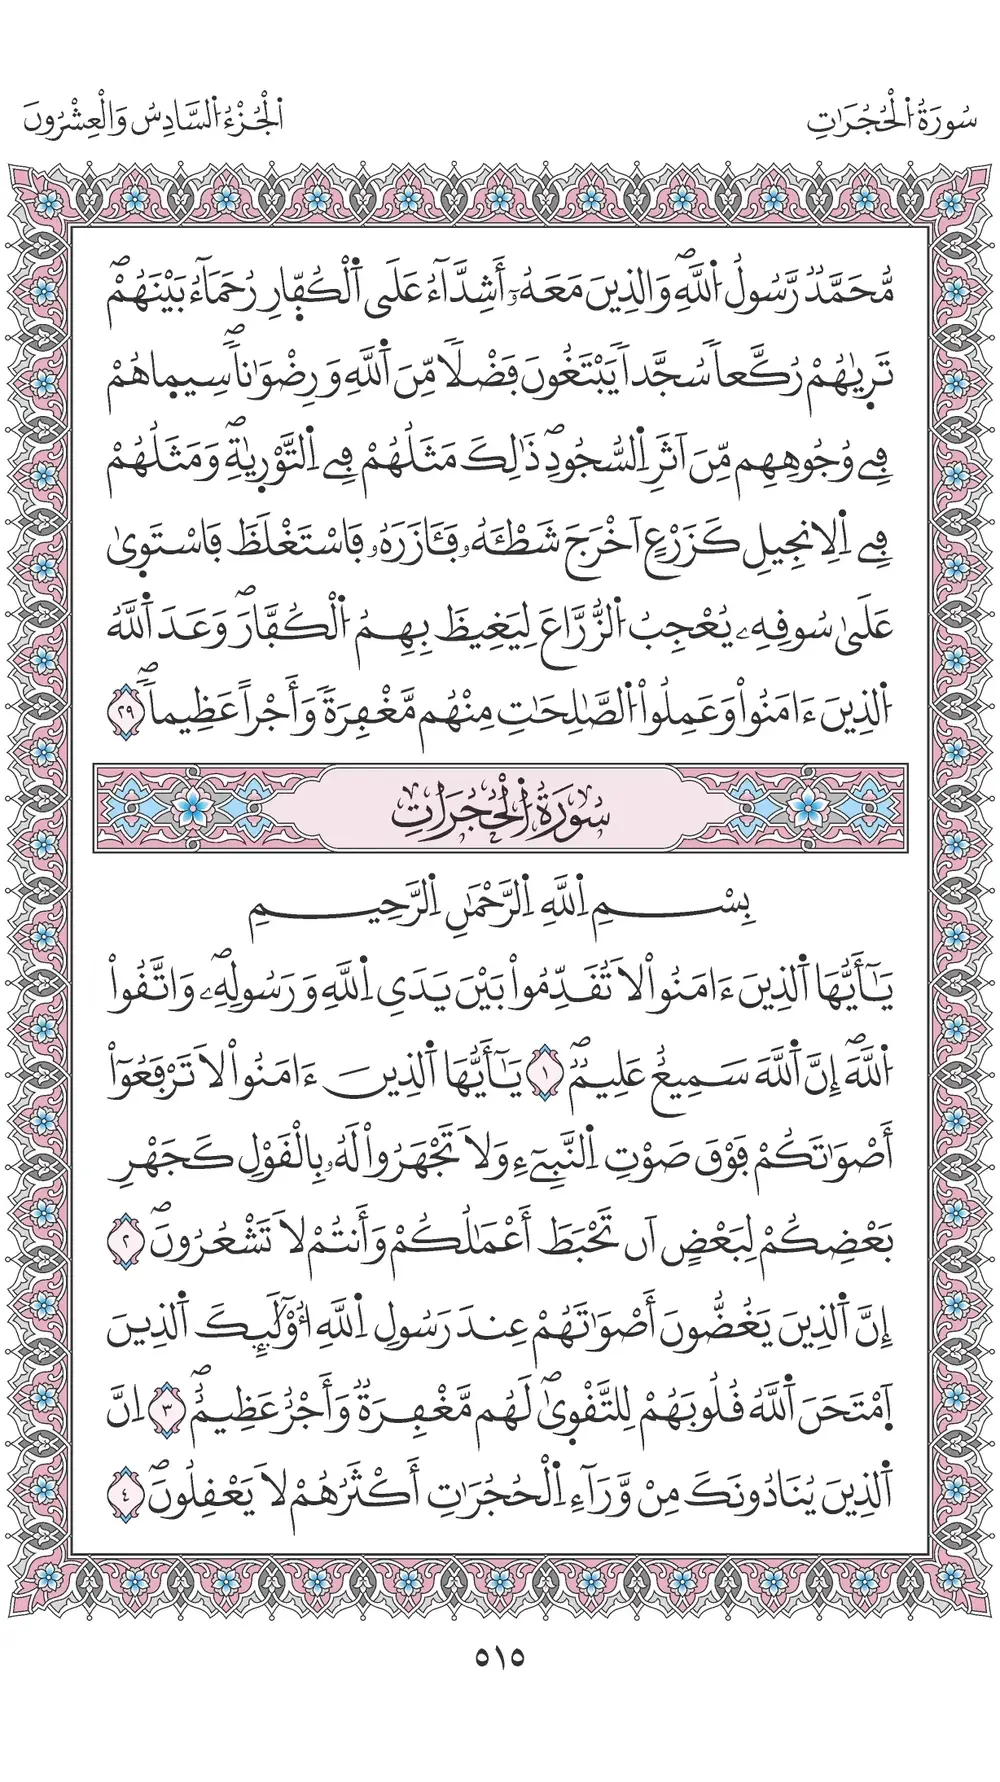 سُورَةُ اُ۬لْحُجُرَٰتِ
اَ۬لْجُزْءُ اُ۬لسَّادِسُ وَالْعِشْرُونَ
مُّحَمَّدٞ رَّسُولُ اُ۬للَّهِۖ وَالذِينَ مَعَهُۥٓ أَشِدَّآءُ عَلَي اَ۬لْكُفّ۪ارِ رُحَمَآءُ بَيْنَهُمْۖ
تَر۪يٰهُمْ رُكَّعاٗ سُجَّداٗ يَبْتَغُونَ فَضْلاٗ مِّنَ اَ۬للَّهِ وَرِضْوَٰناٗۖ سِيم۪اهُمْ
فِے وُجُوهِهِم مِّنَ اَثَرِ اِ۬لسُّجُودِۖ ذَٰلِكَ مَثَلُهُمْ فِے اِ۬لتَّوْر۪يٰةِۖ وَمَثَلُهُمْ
فِے اِ۬لِانجِيلِ كَزَرْعٍ اَخْرَجَ شَطْـَٔهُۥ فَـَٔازَرَهُۥ فَاسْتَغْلَظَ فَاسْتَو۪يٰ
عَلَيٰ سُوقِهِۦ يُعْجِبُ اُ۬لزُّرَّاعَ لِيَغِيظَ بِهِمُ اُ۬لْكُفَّارَۖ وَعَدَ اَ۬للَّهُ
اُ۬لذِينَ ءَامَنُواْ وَعَمِلُواْ اُ۬لصَّٰلِحَٰتِ مِنْهُم مَّغْفِرَةٗ وَأَجْراً عَظِيماٗۖ ٢٩
سُورَةُ اُ۬لْحُجُرَاتِ
بِسْمِ اِ۬للَّهِ اِ۬لرَّحْمَٰنِ اِ۬لرَّحِيمِ
يَٰٓأَيُّهَا اَ۬لذِينَ ءَامَنُواْ لَا تُقَدِّمُواْ بَيْنَ يَدَيِ اِ۬للَّهِ وَرَسُولِهِۦۖ وَاتَّقُواْ
اُ۬للَّهَۖ إِنَّ اَ۬للَّهَ سَمِيعٌ عَلِيمٞۖ ١ يَٰٓأَيُّهَا اَ۬لذِينَ ءَامَنُواْ لَا تَرْفَعُوٓاْ
أَصْوَٰتَكُمْ فَوْقَ صَوْتِ اِ۬لنَّبِيٓءِ وَلَا تَجْهَرُواْ لَهُۥ بِالْقَوْلِ كَجَهْرِ
بَعْضِكُمْ لِبَعْضٍ اَن تَحْبَطَ أَعْمَٰلُكُمْ وَأَنتُمْ لَا تَشْعُرُونَۖ ٢
إِنَّ اَ۬لذِينَ يَغُضُّونَ أَصْوَٰتَهُمْ عِندَ رَسُولِ اِ۬للَّهِ أُوْلَٰٓئِكَ اَ۬لذِينَ
اَ۪مْتَحَنَ اَ۬للَّهُ قُلُوبَهُمْ لِلتَّقْو۪يٰۖ لَهُم مَّغْفِرَةٞ وَأَجْرٌ عَظِيمٌۖ ٣ اِنَّ
اَ۬لذِينَ يُنَادُونَكَ مِنْ وَّرَآءِ اِ۬لْحُجُرَٰتِ أَكْثَرُهُمْ لَا يَعْقِلُونَۖ ٤
٥١٥